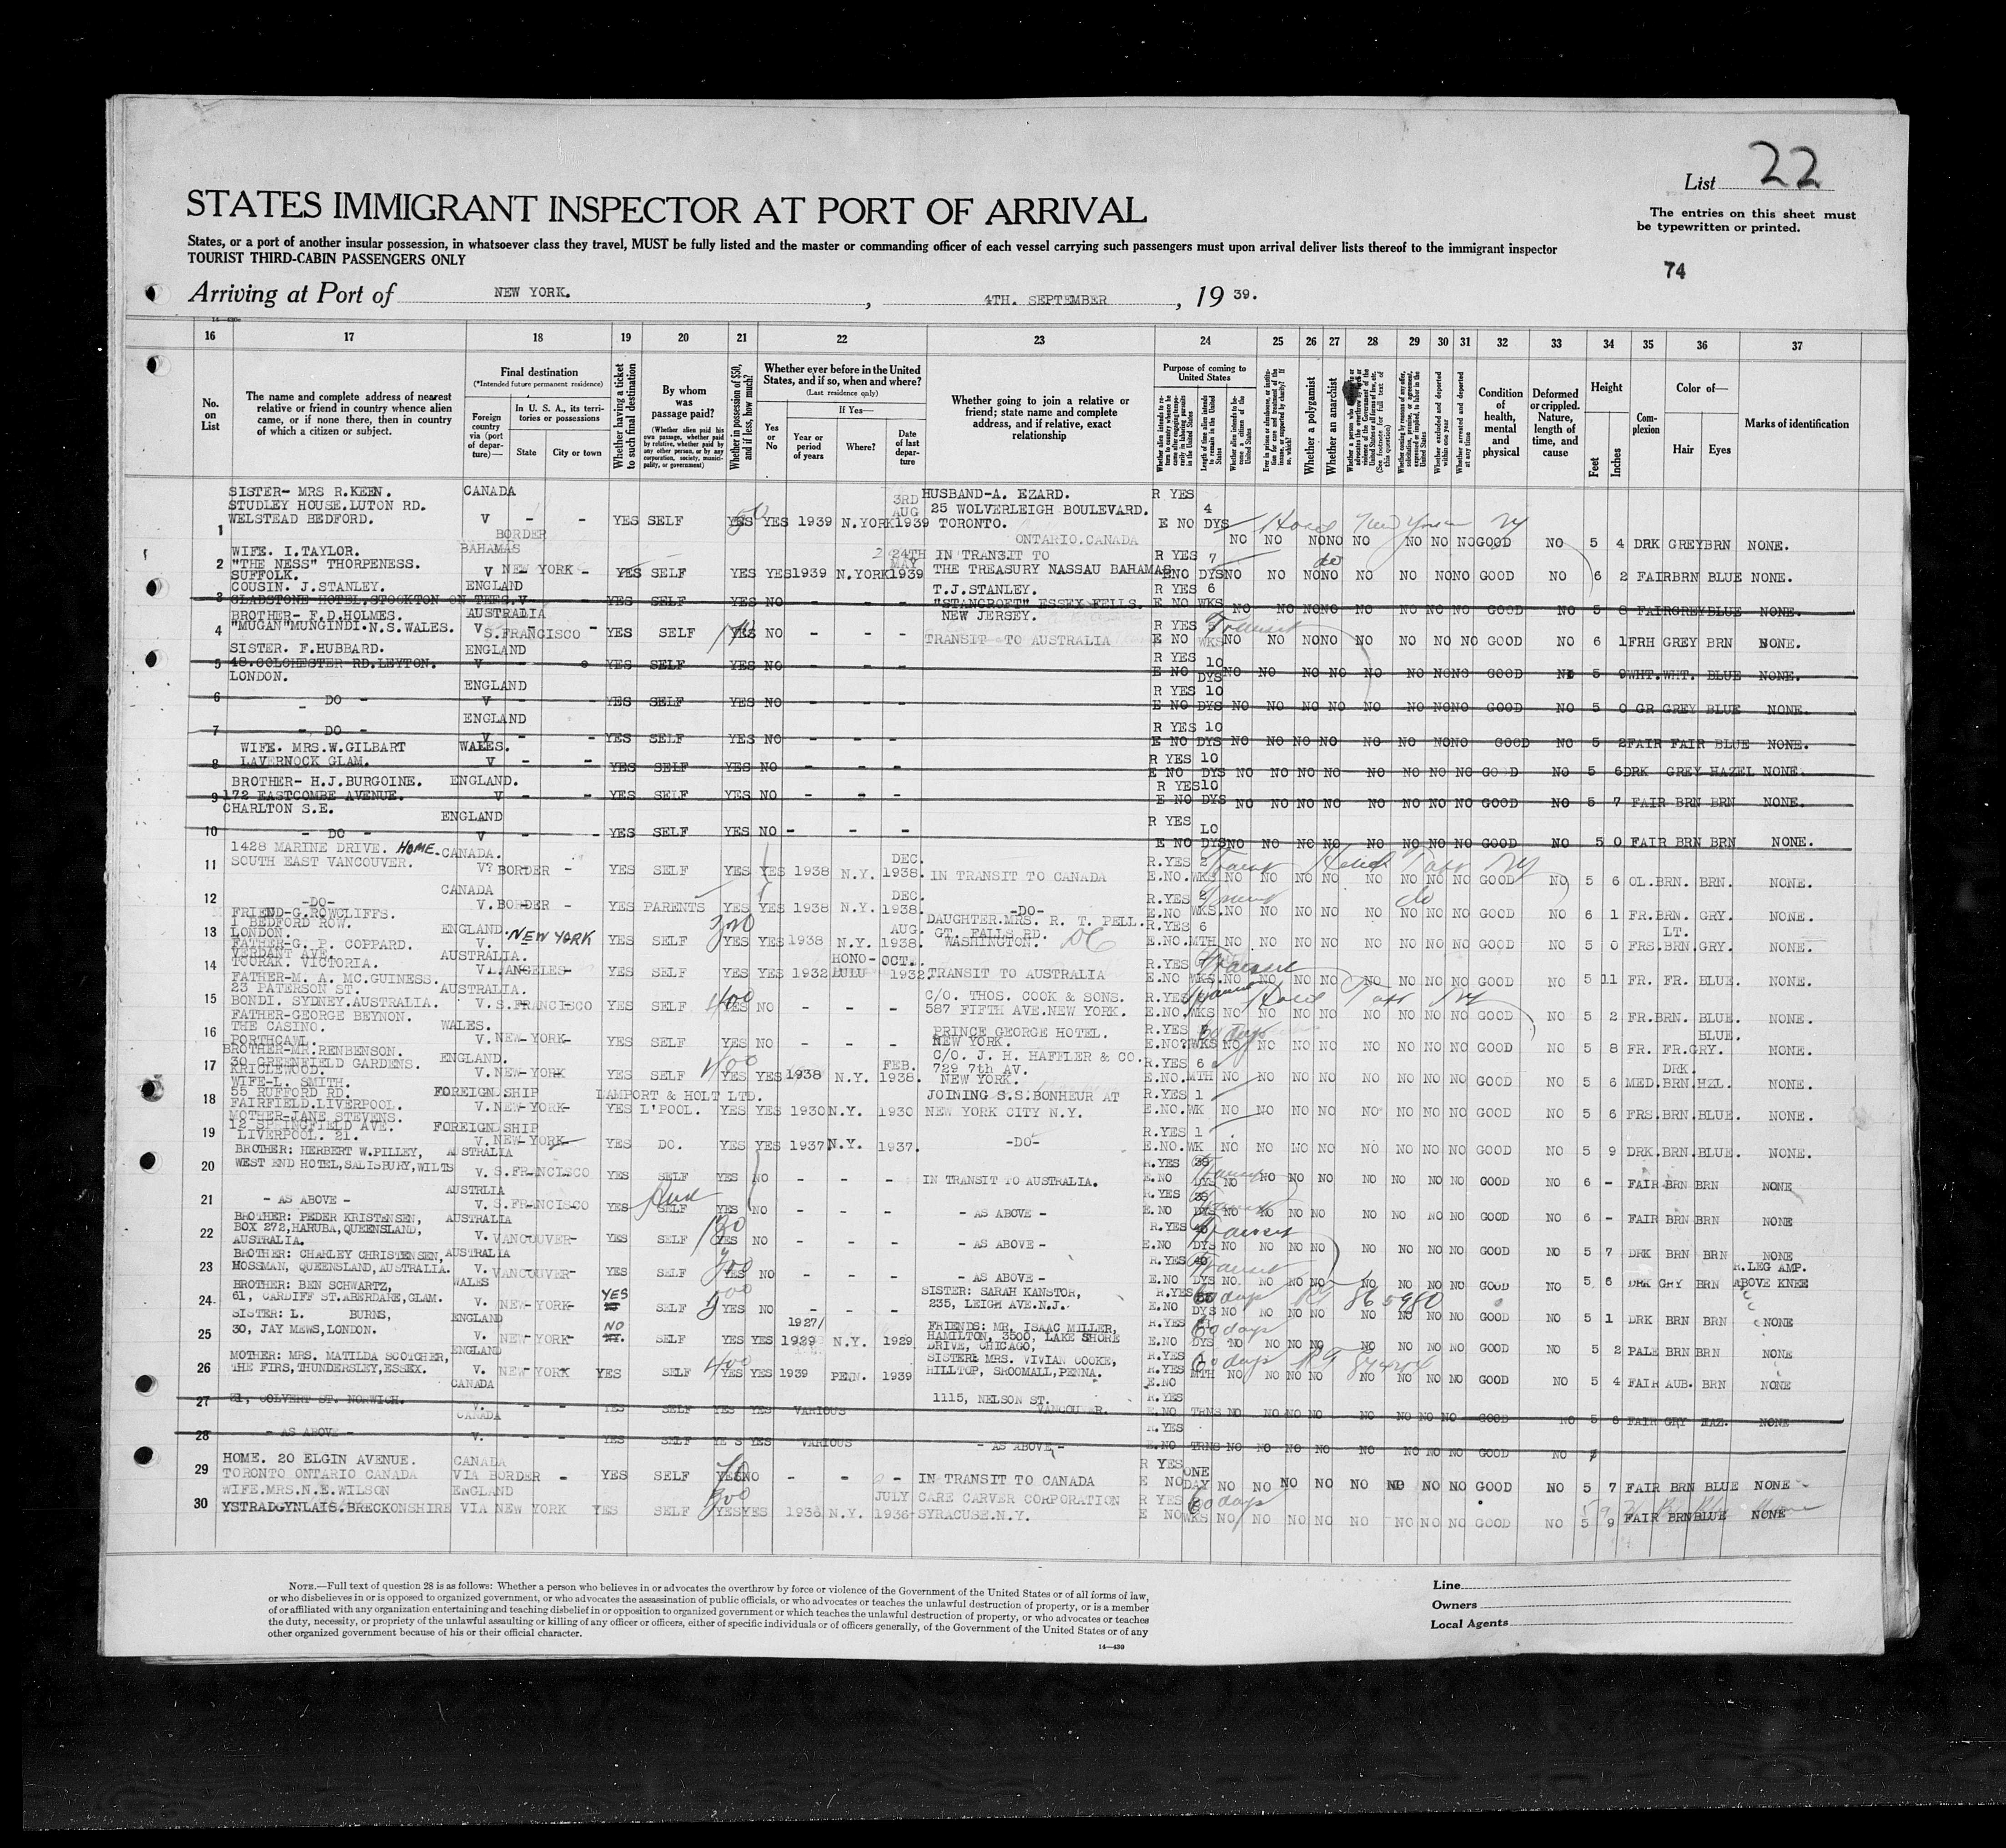 List 22
STATES IMMIGRANT INSPECTOR AT PORT OF ARRIVAL
The entries on this sheet must
be typewritten or printed.
States, or a port of another insular possession, in whatsoever class they travel, MUST be fully listed and the master or commanding officer of each vessel carrying such passengers must upon arrival deliver lists thereof to the immigrant inspector
TOURIST THIRD-CABIN PASSENGERS ONLY
74
Arriving at Port of NEW YORK. , 4TH. SEPTEMBER , 19 39.
16 17 18 19 20 21 22 23 24 25 26 27 28 29 30 31 32 33 34 35 36 37
No. on List
The name and complete address of nearest relative or friend in country whence alien came, or if none there, then in country of which a citizen or subject.
Final destination
(*Intended future permanent residence)
Foreign country via (port of departure)—
In U. S. A., its territories or possessions
State
City or town
Whether having a ticket to such final destination
By whom was passage paid?
(Whether alien paid his own passage, whether paid by relative, whether paid by any other person, or by any corporation, society, municipality, or government)
Whether in possession of $50, and if less, how much?
Whether ever before in the United States, and if so, when and where?
(Last residence only)
Yes or No
If Yes—
Year or period of years
Where?
Date of last departure
Whether going to join a relative or friend; state name and complete address, and if relative, exact relationship
Purpose of coming to United States
Length of time alien intends to remain in the United States
Whether a polygamist
Whether an anarchist
Whether excluded and deported within one year
Whether arrested and deported at any time
Condition of health, mental and physical
Deformed or crippled. Nature, length of time, and cause
Height
Feet
Inches
Complexion
Color of—
Hair
Eyes
Marks of identification
1 SISTER- MRS R.KEEN. STUDLEY HOUSE.LUTON RD. WELSTEAD BEDFORD. CANADA V - - BORDER YES SELF YES YES 1939 N.YORK 3RD AUG 1939 HUSBAND-A. EZARD. 25 WOLVERLEIGH BOULEVARD. TORONTO. ONTARIO.CANADA R YES E NO 4 DYS NO NO NO NO NO NO NO NO GOOD NO 5 4 DRK GREY BRN NONE.
2 WIFE. I.TAYLOR. "THE NESS" THORPENESS. SUFFOLK. BAHAMAS V NEW YORK - YES SELF YES YES 1939 N.YORK 24TH MAY 1939 IN TRANSIT TO THE TREASURY NASSAU BAHAMAS R YES E NO 7 DYS NO NO NO NO NO NO NO NO GOOD NO 6 2 FAIR BRN BLUE NONE.
3 COUSIN. J.STANLEY. GLADSTONE HOTEL.STOCKTON ON TEES. ENGLAND V - - YES SELF YES NO - - - T.J.STANLEY. "STANCROFT" ESSEX FELLS. NEW JERSEY. R YES E NO 6 WKS NO NO NO NO NO NO NO NO GOOD NO 5 8 FAIR GREY BLUE NONE.
4 BROTHER- F.D.HOLMES. "MUGAN"MUNGINDI.N.S.WALES. AUSTRALIA V S.FRANCISCO - YES SELF YES NO - - - TRANSIT TO AUSTRALIA R YES E NO WKS Transit NO NO NO NO NO NO NO NO GOOD NO 6 1 FRH GREY BRN NONE.
5 SISTER. F.HUBBARD. 48.COLCHESTER RD.LEYTON. LONDON. ENGLAND V - YES SELF YES NO - - - R YES E NO 10 DYS NO NO NO NO NO NO NO NO GOOD NO 5 9 WHT. WHT. BLUE NONE.
6 - DO - ENGLAND V - - YES SELF YES NO - - - R YES E NO 10 DYS NO NO NO NO NO NO NO NO GOOD NO 5 0 GR GREY BLUE NONE.
7 - DO - ENGLAND V - - YES SELF YES NO - - - R YES E NO 10 DYS NO NO NO NO NO NO NO NO GOOD NO 5 2 FAIR FAIR BLUE NONE.
8 WIFE. MRS.W.GILBART LAVERNOCK GLAM. WALES. V - - YES SELF YES NO - - - R YES E NO 10 DYS NO NO NO NO NO NO NO NO GOOD NO 5 6 DRK GREY HAZEL NONE.
9 BROTHER- H.J.BURGOINE. 172 EASTCOMBE AVENUE. CHARLTON S.E. ENGLAND. V - - YES SELF YES NO - - - R YES E NO 10 DYS NO NO NO NO NO NO NO NO GOOD NO 5 7 FAIR BRN BRN NONE.
10 - DO - ENGLAND V - - YES SELF YES NO - - - R YES E NO LO DYS NO NO NO NO NO NO NO NO GOOD NO 5 0 FAIR BRN BRN NONE.
11 1428 MARINE DRIVE. HOME. SOUTH EAST VANCOUVER. CANADA. V? BORDER - YES SELF YES YES 1938 N.Y. DEC. 1938. IN TRANSIT TO CANADA R.YES E.NO. 2 WKS NO NO NO NO NO NO NO NO GOOD NO 5 6 OL.BRN. BRN. NONE.
12 -DO- CANADA V.BORDER - YES PARENTS YES YES 1938 N.Y. DEC. 1938. -DO- R.YES E.NO WKS.NO NO NO NO NO NO NO NO GOOD NO 6 1 FR.BRN. GRY. NONE.
13 FRIEND-G.ROWCLIFFS. 1 BEDFORD ROW. LONDON. ENGLAND. V. NEW YORK YES SELF 320 YES YES 1938 N.Y. AUG. 1938. DAUGHTER.MRS. R. T. PELL. GT. FALLS RD. WASHINGTON. DC R.YES E.NO. 6 MTH NO NO NO NO NO NO NO NO GOOD NO 5 0 FRS. LT. BRN. GRY. NONE.
14 FATHER-G. P. COPPARD. VERDANT AVE. TOORAK. VICTORIA. AUSTRALIA. V L.ANGELES- YES SELF YES YES 1932 HONO-LULU OCT. 1932. TRANSIT TO AUSTRALIA R.YES E.NO. WKS. Transit NO NO NO NO NO NO NO NO GOOD NO 5 11 FR. FR. BLUE. NONE.
15 FATHER-M. A. MC.GUINESS. 23 PATERSON ST. BONDI. SYDNEY.AUSTRALIA. AUSTRALIA. V.S.FRANCISCO YES SELF 400 YES NO - - - C/O. THOS. COOK & SONS. 587 FIFTH AVE.NEW YORK. R.YES E.NO. WKS NO NO NO NO NO NO NO NO GOOD NO 5 2 FR.BRN. BLUE. NONE.
16 FATHER-GEORGE BEYNON. THE CASINO. PORTHCAWL. WALES. V.NEW YORK- YES SELF YES NO - - - PRINCE GEORGE HOTEL. NEW YORK. R.YES E.NO? WKS 60 days NO NO NO NO NO NO NO NO GOOD NO 5 8 FR. FR. BLUE. GRY. NONE.
17 BROTHER-MR.RENBENSON. 30 GREENFIELD GARDENS. KRICLEWOOD. ENGLAND. V.NEW YORK YES SELF 400 YES YES 1938 N.Y. FEB. 1938. C/O. J. H. HAFFLER & CO. 729 7th AV. NEW YORK. R.YES E.NO. 6 MTH NO NO NO NO NO NO NO NO GOOD NO 5 6 MED. DRK. BRN. HZL. NONE.
18 WIFE-L. SMITH. 55 RUFFORD RD. FAIRFIELD.LIVERPOOL. FOREIGN SHIP V.NEW-YORK- LAMPORT & HOLT LTD. YES L'POOL. YES YES 1930 N.Y. 1930 JOINING S.S.BONHEUR AT NEW YORK CITY N.Y. R.YES E.NO. 1 WK NO NO NO NO NO NO NO NO GOOD NO 5 6 FRS.BRN.BLUE. NONE.
19 MOTHER-JANE STEVENS. 12 SPRINGFIELD AVE. LIVERPOOL. 21. FOREIGN SHIP V. NEW-YORK- YES DO. YES YES 1937 N.Y. 1937. -DO- R.YES E.NO. 1 WK NO NO NO NO NO NO NO NO GOOD NO 5 9 DRK.BRN.BLUE. NONE.
20 BROTHER: HERBERT W.PILLEY, WEST END HOTEL,SALISBURY,WILTS AUSTRALIA V. S.FRANCISCO YES SELF YES NO - - - IN TRANSIT TO AUSTRALIA. R.YES E.NO DYS NO NO NO NO NO NO NO NO GOOD NO 6 - FAIR BRN BRN NONE
21 - AS ABOVE - AUSTRLIA V. S.FRANCISCO YES SELF YES NO - - - - AS ABOVE - R.YES E.NO DYS NO NO NO NO NO NO NO NO GOOD NO 6 - FAIR BRN BRN NONE
22 BROTHER: PEDER KRISTENSEN, BOX 272,HARUBA,QUEENSLAND, AUSTRALIA. AUSTRALIA V. VANCOUVER- YES SELF YES NO - - - - AS ABOVE - R.YES E.NO DYS Transit NO NO NO NO NO NO NO NO GOOD NO 5 7 DRK BRN BRN NONE
23 BROTHER: CHARLEY CHRISTENSEN, MOSSMAN, QUEENSLAND,AUSTRALIA. AUSTRALIA V. VANCOUVER- YES SELF YES NO - - - - AS ABOVE - R.YES E.NO DYS Transit NO NO NO NO NO NO NO NO GOOD NO 5 6 DRK GRY BRN R.LEG AMP. ABOVE KNEE
24 BROTHER: BEN SCHWARTZ, 61, CARDIFF ST.ABERDARE,GLAM. WALES V. NEW-YORK- YES SELF YES NO - - - SISTER: SARAH KANSTOR, 235, LEIGH AVE.N.J. R.YES E.NO DYS 60 days 865980 NO NO NO NO NO NO NO NO GOOD NO 5 1 DRK BRN BRN NONE
25 SISTER: L. BURNS, 30, JAY MEWS,LONDON. ENGLAND V. NEW-YORK- NO SELF YES YES 1927/1929 N.Y. 1929 FRIENDS: MR, ISAAC MILLER, HAMILTON, 3500, LAKE SHORE DRIVE, CHICAGO, R.YES E.NO DYS 60 days NO NO NO NO NO NO NO NO GOOD NO 5 2 PALE BRN BRN NONE
26 MOTHER: MRS. MATILDA SCOTCHER, THE FIRS,THUNDERSLEY,ESSEX. ENGLAND V. NEW YORK YES SELF 400 YES YES 1939 PENN. 1939 SISTER: MRS. VIVIAN COOKE, HILLTOP, SHOOMALL,PENNA. R.YES E.NO MTH 60 days NO NO NO NO NO NO NO NO GOOD NO 5 4 FAIR AUB. BRN NONE
27 21, COLVERT ST. NORWICH. CANADA V. - - YES SELF YES YES VARIOUS 1115, NELSON ST. VANCOUVER. R.YES E.NO TRNS NO NO NO NO NO NO NO NO GOOD NO 5 6 FAIR GRY HAZ. NONE
28 - AS ABOVE - CANADA V. - - YES SELF YES YES VARIOUS - AS ABOVE - R.YES E.NO TRNS NO NO NO NO NO NO NO NO GOOD NO
29 HOME. 20 ELGIN AVENUE. TORONTO ONTARIO CANADA CANADA VIA BORDER - YES SELF YES NO - - - IN TRANSIT TO CANADA R YES E NO ONE DAY NO NO NO NO NO NO NO NO GOOD NO 5 7 FAIR BRN BLUE NONE
30 WIFE.MRS.N.E.WILSON YSTRADGYNLAIS.BRECKONSHIRE ENGLAND VIA NEW YORK YES SELF YES YES 1936 N.Y. JULY 1936- CARE CARVER CORPORATION SYRACUSE.N.Y. R YES E NO WKS 60 days NO NO NO NO NO NO NO NO GOOD NO 5 9 FAIR BRN BLUE NONE
NOTE.—Full text of question 28 is as follows: Whether a person who believes in or advocates the overthrow by force or violence of the Government of the United States or of all forms of law,
or who disbelieves in or is opposed to organized government, or who advocates the assassination of public officials, or who advocates or teaches the unlawful destruction of property, or is a member
of or affiliated with any organization entertaining and teaching disbelief in or opposition to organized government or which teaches the unlawful destruction of property, or who advocates or teaches
the duty, necessity, or propriety of the unlawful assaulting or killing of any officer or officers, either of specific individuals or of officers generally, of the Government of the United States or of any
other organized government because of his or their official character.
14—430
Line
Owners
Local Agents